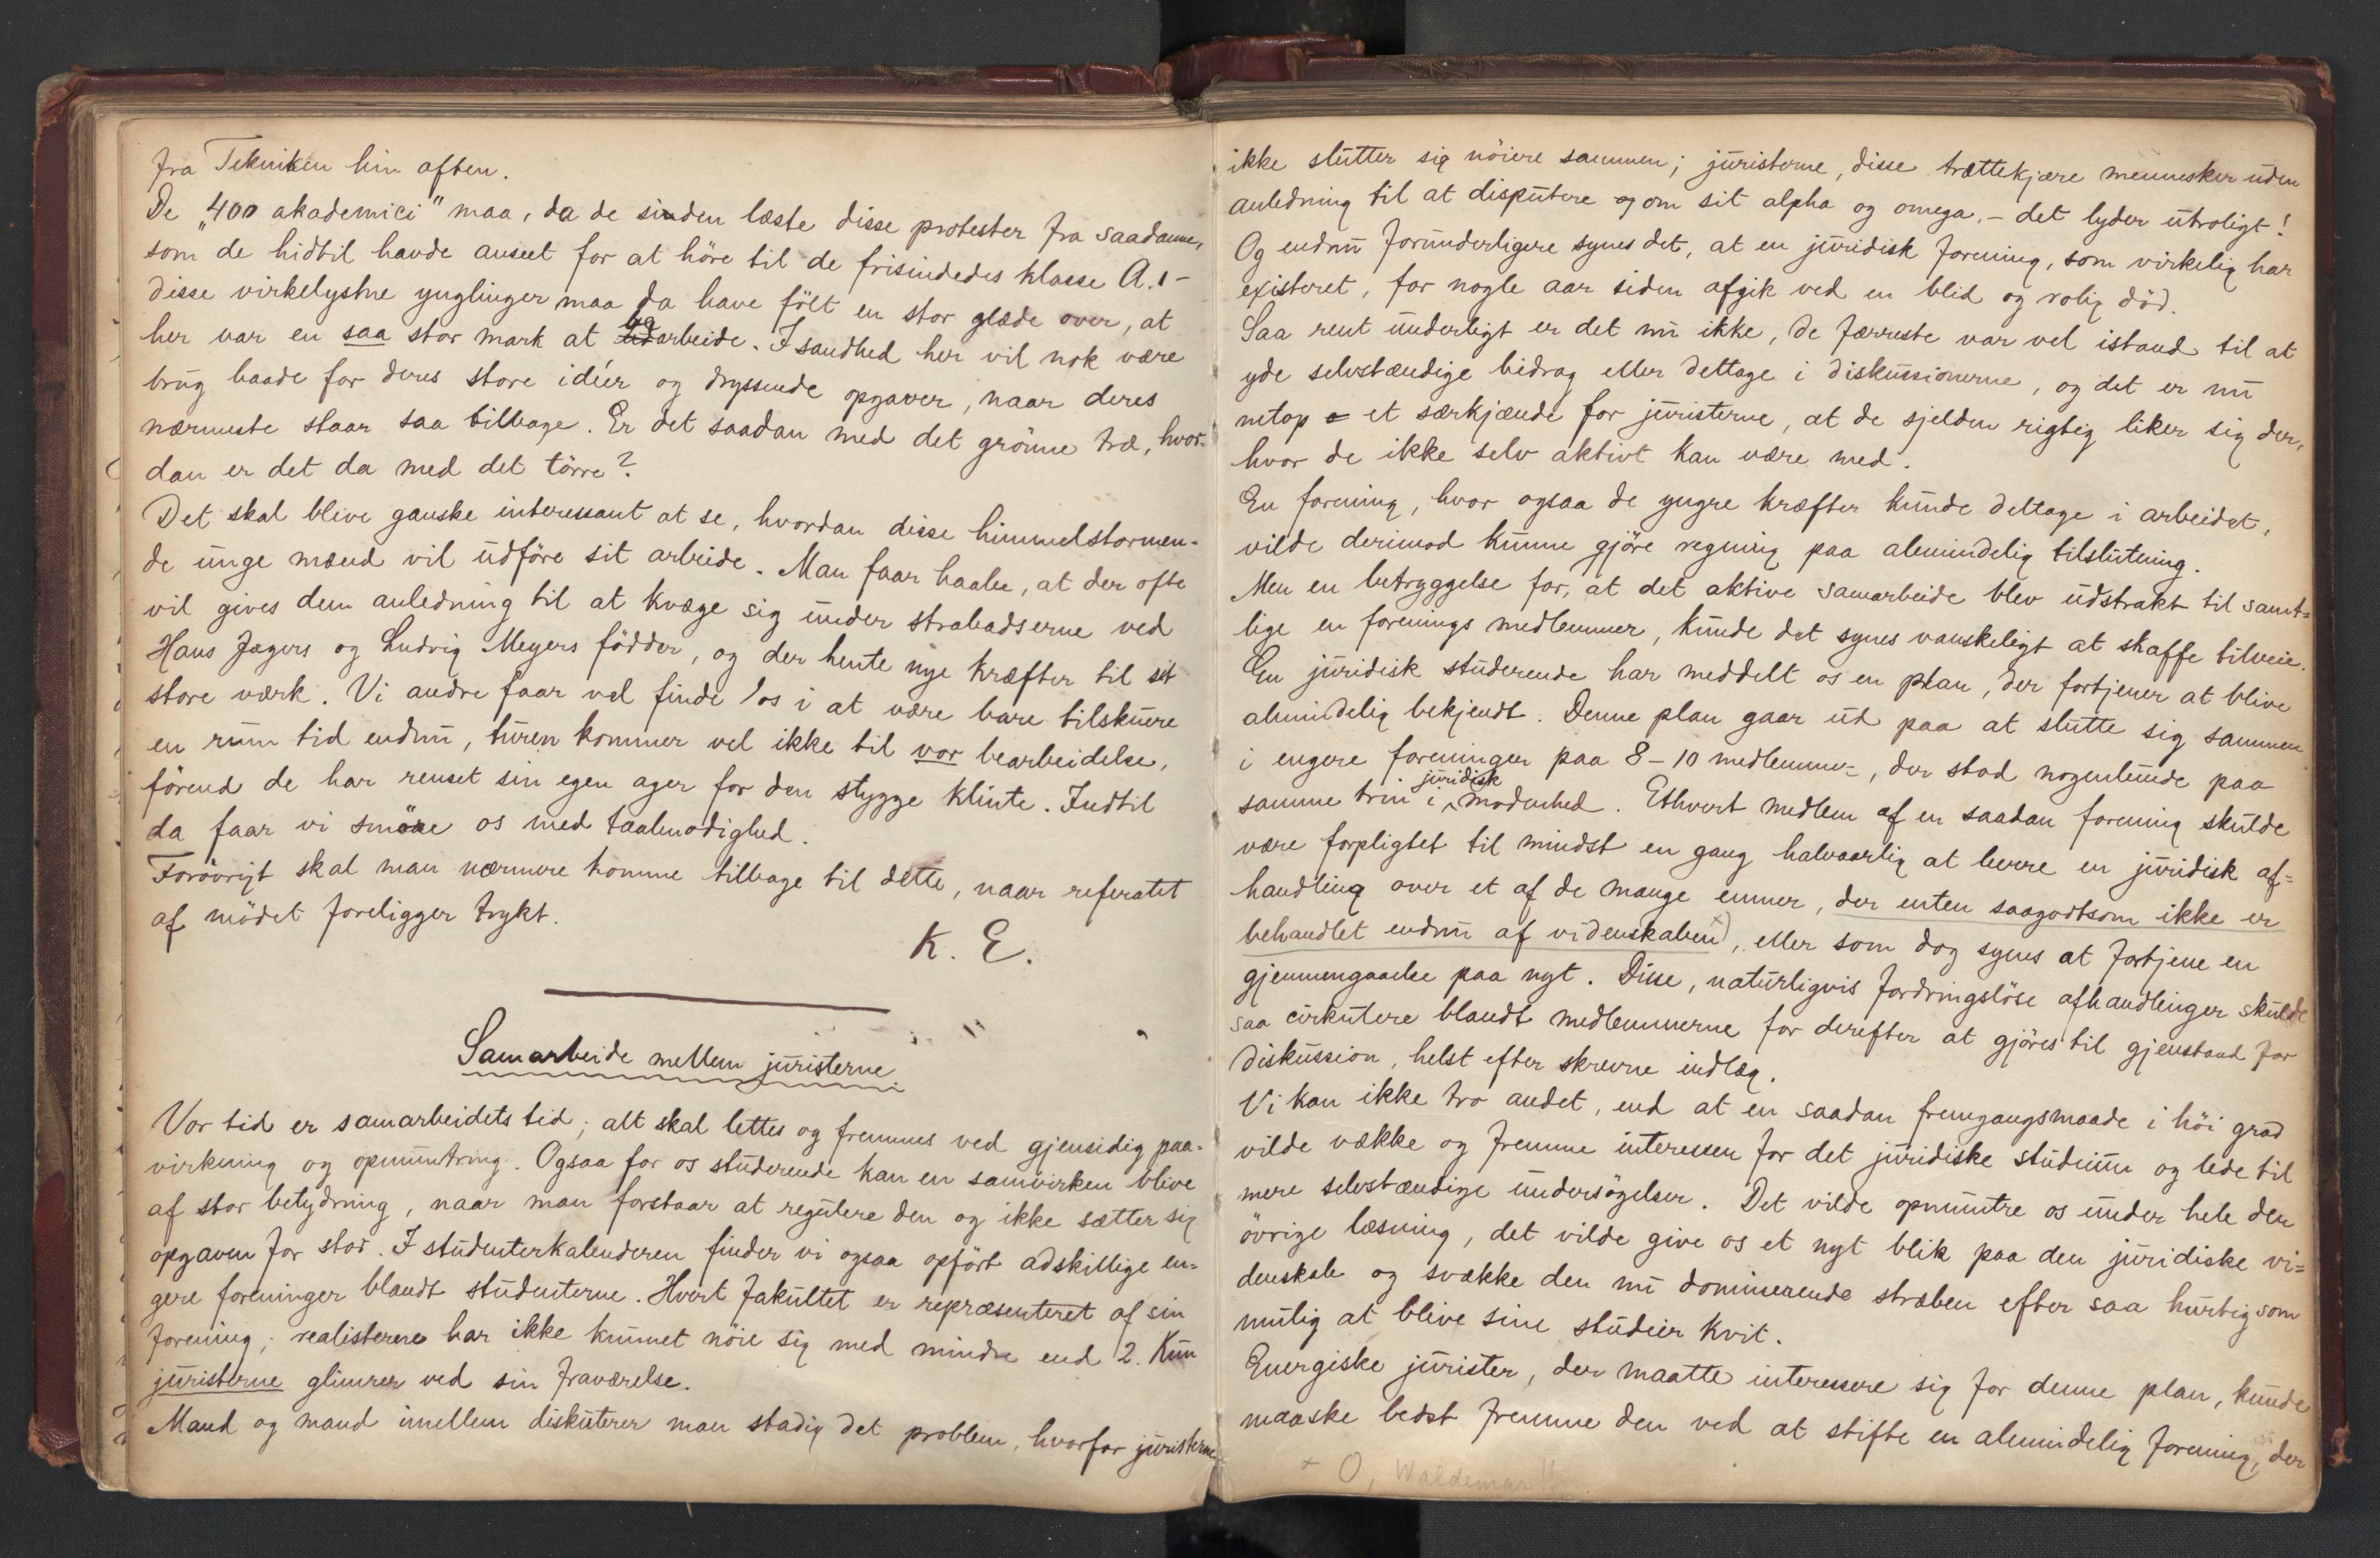 fra Tekniken hin aften.
De "400 akademici" maa, da de siden læste disse protester fra saadanne,
som de hidtil havde anseet for at höre til de frisindedes klasse A.1 –
disse virkelystne ynglinger maa da have fölt en stor glæde over, at
her var en saa stor mark at bearbeide. I sandhed her vil nok være
brug baade for deres store idéer og dryssende opgaver, naar deres
nærmeste staar saa tilbage. Er det saadan med det grönne træ, hvor-
dan er det da med det törre?
Det skal blive ganske interessant at se, hvordan disse himmelstormen-
de unge mænd vil udföre sit arbeide. Man faar haabe, at der ofte
vil gives dem anledning til at kvæge sig under strabadserne ved
Hans Jægers og Ludvig Meyers födder, og der hente nye kræfter til sit
store værk. Vi andre faar vel finde os i at være bare tilskuere
en rum tid endnu, turen kommer vel ikke til vor bearbeidelse,
förend de har renset sin egen ager for den stygge klinte. Indtil
da faar vi smöre os med taalmodighed.
Forövrigt skal man nærmere komme tilbage til dette, naar referatet
af mödet foreligger trykt.
K. E.
Samarbeide mellem juristerne.
Vor tid er samarbeidets tid; alt skal lettes og fremmes ved gjensidig paa-
virkning og opmuntring. Ogsaa for os studerende kan en samvirken blive
af stor betydning, naar man forstaar at regulere den og ikke sætter sig
opgaven for stor. I studenterkalenderen finder vi ogsaa opfört adskillige en-
gere foreninger blandt studenterne. Hvert fakultet er repræsenteret af sin
forening; realisterne har ikke kunnet nöie sig med mindre end 2. Kun
juristerne glimrer ved sin fraværelse.
Mand og mand imellem diskuterer man stadig det problem, hvorfor juristerne
ikke slutter sig nöiere sammen; juristerne, disse trættekjære mennesker uden
anledning til at disputere som sit alpha og omega, – det lyder utroligt!
Og endnu forunderligere synes det, at en juridisk forening, som virkelig har
existeret, for nogle aar siden afgik ved en blid og rolig död.
Saa rent underligt er det nu ikke, de færreste var vel istand til at
yde selvstændige bidrag eller deltage i diskussionerne, og det er nu
netop et særkjænde for juristerne, at de sjelden rigtig liker sig der,
hvor de ikke selv aktivt kan være med.
En forening, hvor ogsaa de yngre kræfter kunde deltage i arbeidet,
vilde derimod kunne gjöre regning paa almindelig tilslutning.
Men en betryggelse for, at det aktive samarbeide blev udstrakt til samt-
lige en forenings medlemmer, kunde det synes vanskeligt at skaffe tilveie.
En juridisk studerende har meddelt os en plan, der fortjener at blive
almindelig bekjendt. Denne plan gaar ud paa at slutte sig sammen
i engere foreninger paa 8 – 10 medlemmer, der stod nogenlunde paa
samme trin i juridisk modenhed. Ethvert medlem af en saadan forening skulde
være forpligtet til mindst en gang halvaarlig at levere en juridisk af-
handling over et af de mange emner, der enten saagodtsom ikke er
behandlet endnu af videnskaben x), eller som dog synes at fortjene en
gjennemgaaelse paa nyt. Disse, naturligvis fordringslöse afhandlinger skulde
saa cirkulere blandt medlemmerne for derefter at gjöres til gjenstand for
diskussion, helst efter skrevne indlæg.
Vi kan ikke tro andet, end at en saadan fremgangsmaade i höi grad
vilde vække og fremme interessen for det juridiske studium og lede til
mere selvstændige undersögelser. Det vilde opmuntre os under hele den
övrige læsning, det vilde give os et nyt blik paa den juridiske vi-
denskab og svække den nu dominerende stræben efter saa hurtig som
mulig at blive sine studier kvit.
Energiske jurister, der maatte interessere sig for denne plan, kunde
maaske bedst fremme den ved at stifte en almindelig forening, der
x O, Waldemar!!